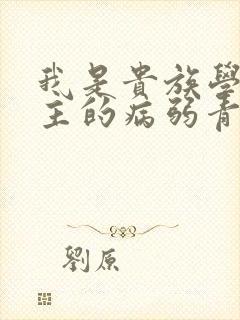 我是貴族學
主的病弱青
劉原